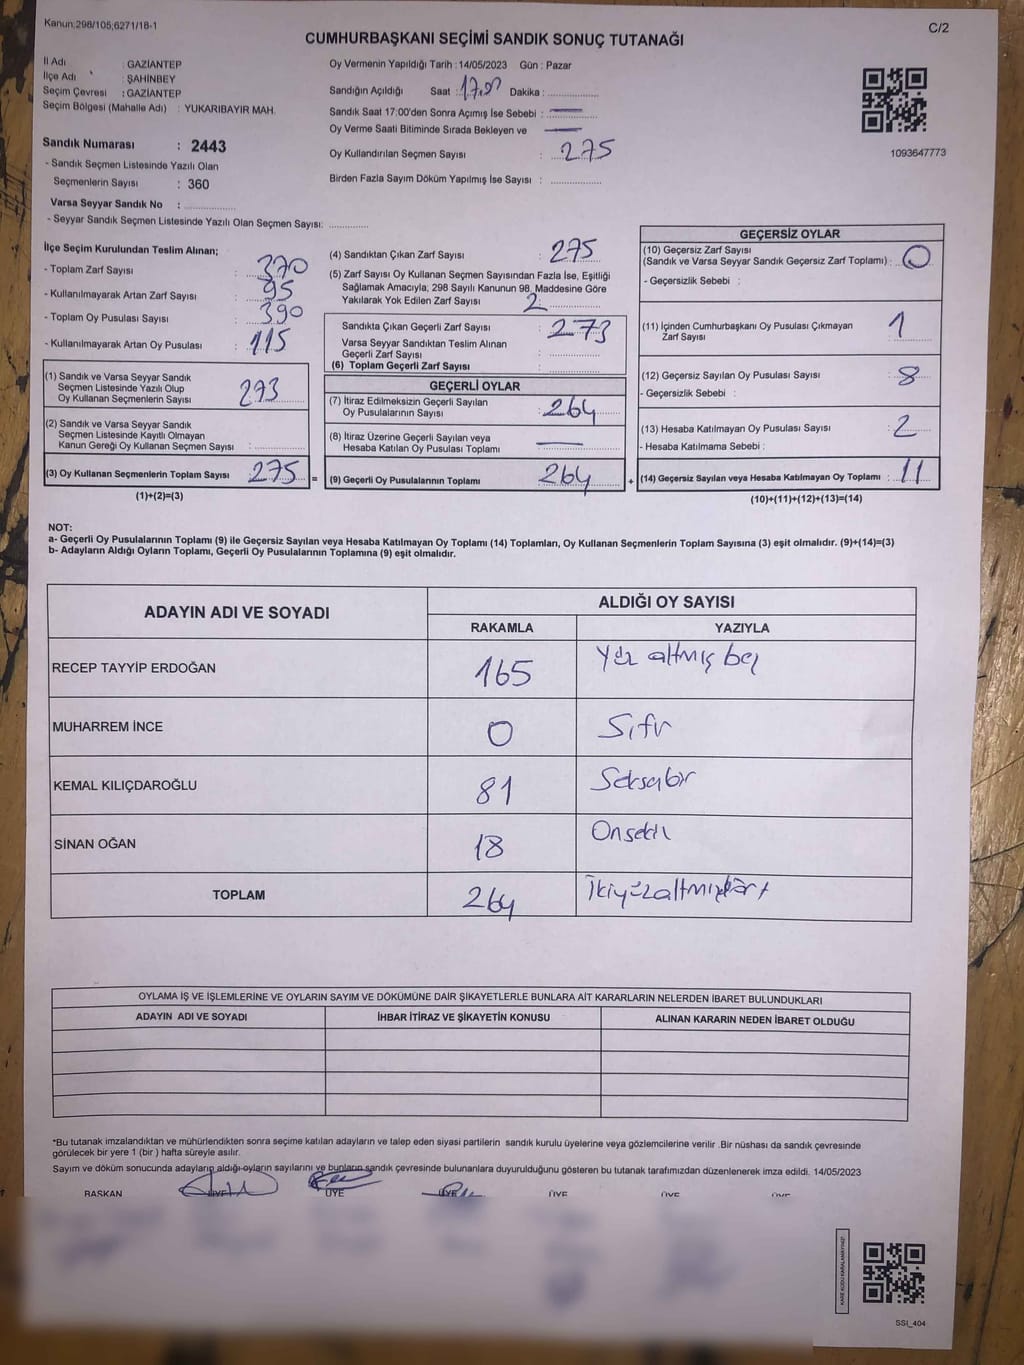 Kanun;298/105;6271/18-1
C/2
CUMHURBAŞKANI SEÇİMİ SANDIK SONUÇ TUTANAĞI
İl Adı : GAZİANTEP
İlçe Adı : ŞAHİNBEY
Seçim Çevresi : GAZİANTEP
Seçim Bölgesi (Mahalle Adı) : YUKARIBAYIR MAH.
Sandık Numarası : 2443
- Sandık Seçmen Listesinde Yazılı Olan
Seçmenlerin Sayısı : 360
Varsa Seyyar Sandık No :
- Seyyar Sandık Seçmen Listesinde Yazılı Olan Seçmen Sayısı:
Oy Vermenin Yapıldığı Tarih : 14/05/2023 Gün : Pazar
Sandığın Açıldığı Saat : 17.00 Dakika :
Sandık Saat 17:00'den Sonra Açımış İse Sebebi :
Oy Verme Saati Bitiminde Sırada Bekleyen ve
Oy Kullandırılan Seçmen Sayısı : 275
Birden Fazla Sayım Döküm Yapılmış İse Sayısı :
1093647773
İlçe Seçim Kurulundan Teslim Alınan;
- Toplam Zarf Sayısı : 370
- Kullanılmayarak Artan Zarf Sayısı : 95
- Toplam Oy Pusulası Sayısı : 390
- Kullanılmayarak Artan Oy Pusulası : 115
(1) Sandık ve Varsa Seyyar Sandık
Seçmen Listesinde Yazılı Olup
Oy Kullanan Seçmenlerin Sayısı 273
(2) Sandık ve Varsa Seyyar Sandık
Seçmen Listesinde Kayıtlı Olmayan
Kanun Gereği Oy Kullanan Seçmen Sayısı :
(3) Oy Kullanan Seçmenlerin Toplam Sayısı : 275 =
(1)+(2)=(3)
(4) Sandıktan Çıkan Zarf Sayısı : 275
(5) Zarf Sayısı Oy Kullanan Seçmen Sayısından Fazla İse, Eşitliği
Sağlamak Amacıyla, 298 Sayılı Kanunun 98. Maddesine Göre
Yakılarak Yok Edilen Zarf Sayısı 2
Sandıkta Çıkan Geçerli Zarf Sayısı : 273
Varsa Seyyar Sandıktan Teslim Alınan
Geçerli Zarf Sayısı :
(6) Toplam Geçerli Zarf Sayısı :
GEÇERLİ OYLAR
(7) İtiraz Edilmeksizin Geçerli Sayılan
Oy Pusulalarının Sayısı : 264
(8) İtiraz Üzerine Geçerli Sayılan veya
Hesaba Katılan Oy Pusulası Toplamı :
(9) Geçerli Oy Pusulalarının Toplamı : 264 +
GEÇERSİZ OYLAR
(10) Geçersiz Zarf Sayısı
(Sandık ve Varsa Seyyar Sandık Geçersiz Zarf Toplamı) : 0
- Geçersizlik Sebebi :
(11) İçinden Cumhurbaşkanı Oy Pusulası Çıkmayan
Zarf Sayısı : 1
(12) Geçersiz Sayılan Oy Pusulası Sayısı : 8
- Geçersizlik Sebebi :
(13) Hesaba Katılmayan Oy Pusulası Sayısı : 2
- Hesaba Katılmama Sebebi :
(14) Geçersiz Sayılan veya Hesaba Katılmayan Oy Toplamı : 11
(10)+(11)+(12)+(13)=(14)
NOT:
a- Geçerli Oy Pusulalarının Toplamı (9) ile Geçersiz Sayılan veya Hesaba Katılmayan Oy Toplamı (14) Toplamları, Oy Kullanan Seçmenlerin Toplam Sayısına (3) eşit olmalıdır. (9)+(14)=(3)
b- Adayların Aldığı Oyların Toplamı, Geçerli Oy Pusulalarının Toplamına (9) eşit olmalıdır.
ADAYIN ADI VE SOYADI
ALDIĞI OY SAYISI
RAKAMLA YAZIYLA
RECEP TAYYİP ERDOĞAN 165 Yüz altmış beş
MUHARREM İNCE 0 Sıfır
KEMAL KILIÇDAROĞLU 81 Seksenbir
SİNAN OĞAN 18 Onsekiz
TOPLAM 264 İkiyüzaltmışdört
OYLAMA İŞ VE İŞLEMLERİNE VE OYLARIN SAYIM VE DÖKÜMÜNE DAİR ŞİKAYETLERLE BUNLARA AİT KARARLARIN NELERDEN İBARET BULUNDUKLARI
ADAYIN ADI VE SOYADI İHBAR İTİRAZ VE ŞİKAYETİN KONUSU ALINAN KARARIN NEDEN İBARET OLDUĞU
*Bu tutanak imzalandıktan ve mühürlendikten sonra seçime katılan adayların ve talep eden siyasi partilerin sandık kurulu üyelerine veya gözlemcilerine verilir .Bir nüshası da sandık çevresinde
görülecek bir yere 1 (bir ) hafta süreyle asılır.
Sayım ve döküm sonucunda adayların aldığı oyların sayılarını ve bunların sandık çevresinde bulunanlara duyurulduğunu gösteren bu tutanak tarafımızdan düzenlenerek imza edildi. 14/05/2023
BAŞKAN ÜYE ÜYE ÜYE ÜYE ÜYE ÜYE
SSI_404